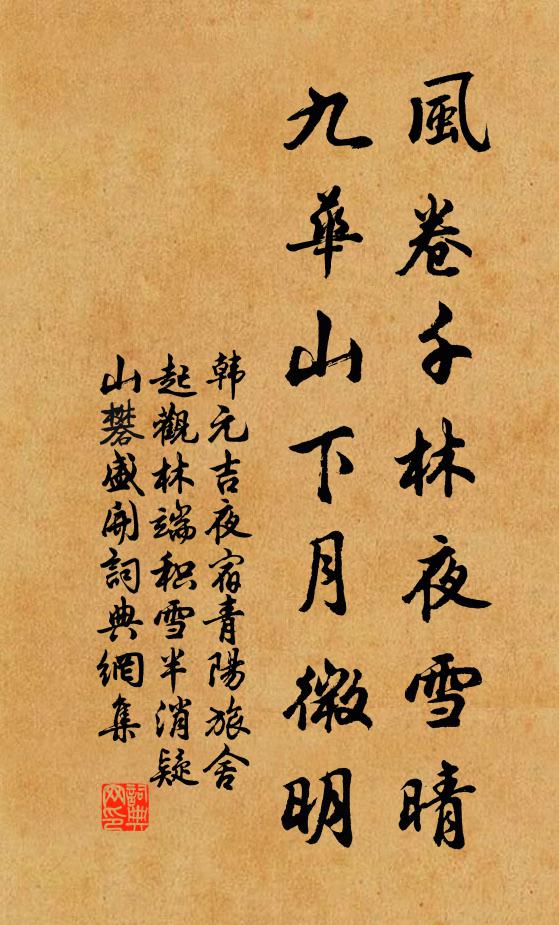 風卷千林夜雪晴
九華山下月微明
韩元吉夜宿青陽旅舍
起觀林端积雪半消疑
山礬盛開詞典網集
詞典網印